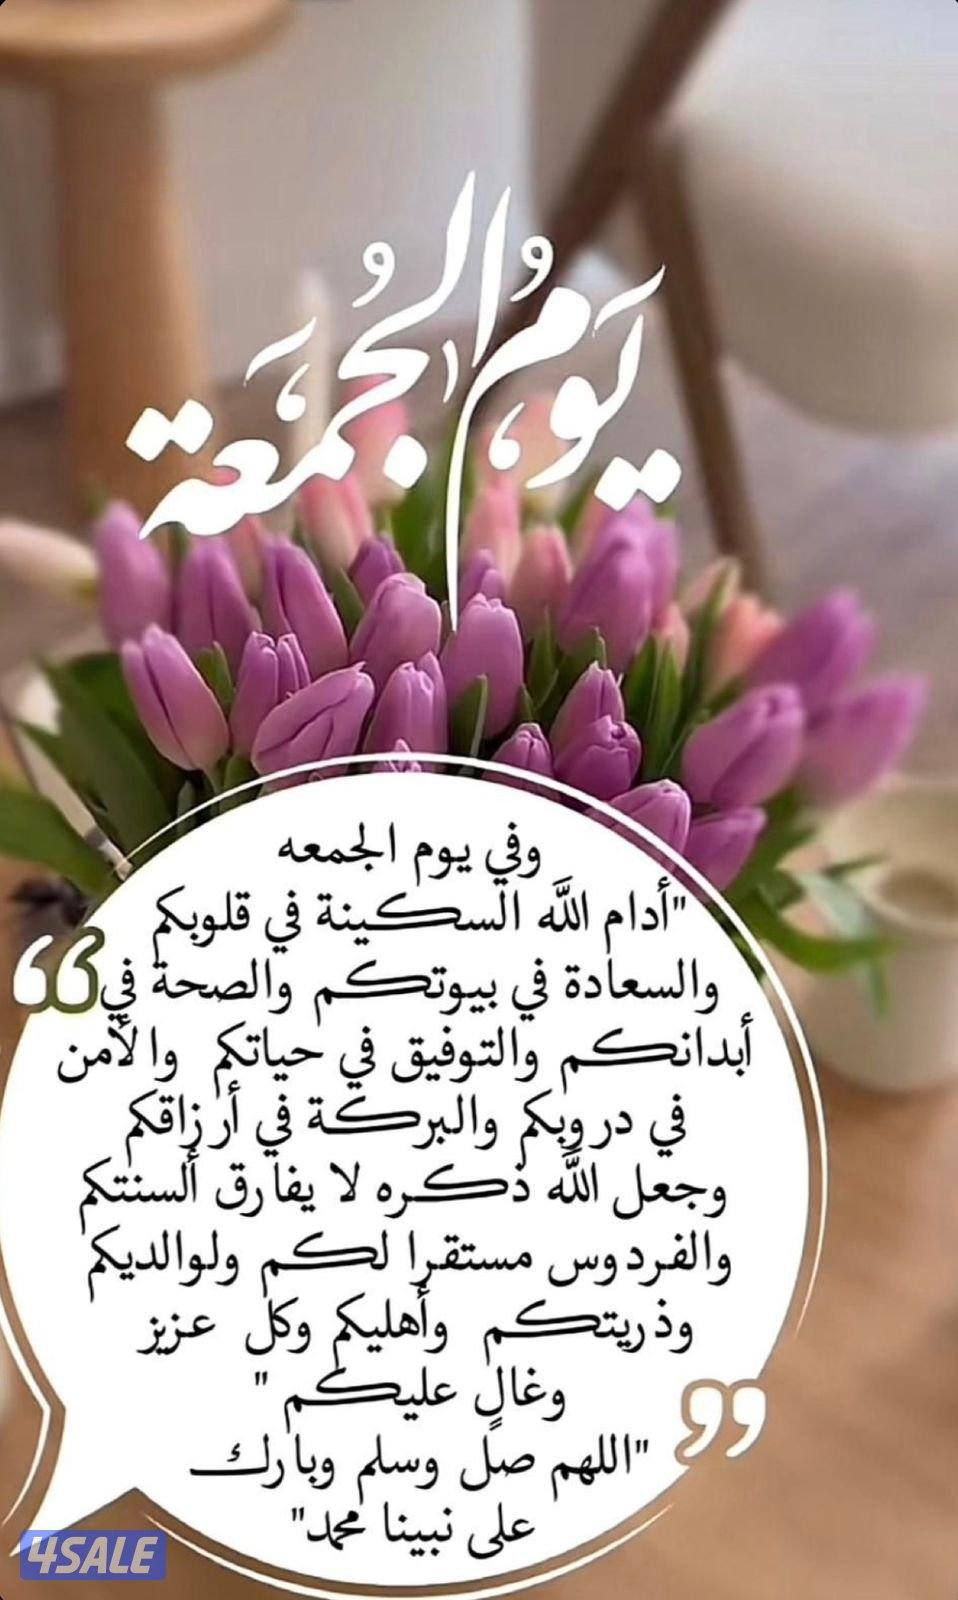 يَوْمُ الْجُمَعَة
وفي يوم الجمعه
"أدام اللَّه السكينة في قلوبكم
والسعادة في بيوتكم والصحة في
أبدانكم والتوفيق في حياتكم والأمن
في دروبكم والبركة في أرزاقكم
وجعل اللَّه ذكره لا يفارق ألسنتكم
والفردوس مستقرا لكم ولوالديكم
وذريتكم وأهليكم وكل عزيز
وغالٍ عليكم"
"اللهم صل وسلم وبارك
على نبينا محمد"
4SALE